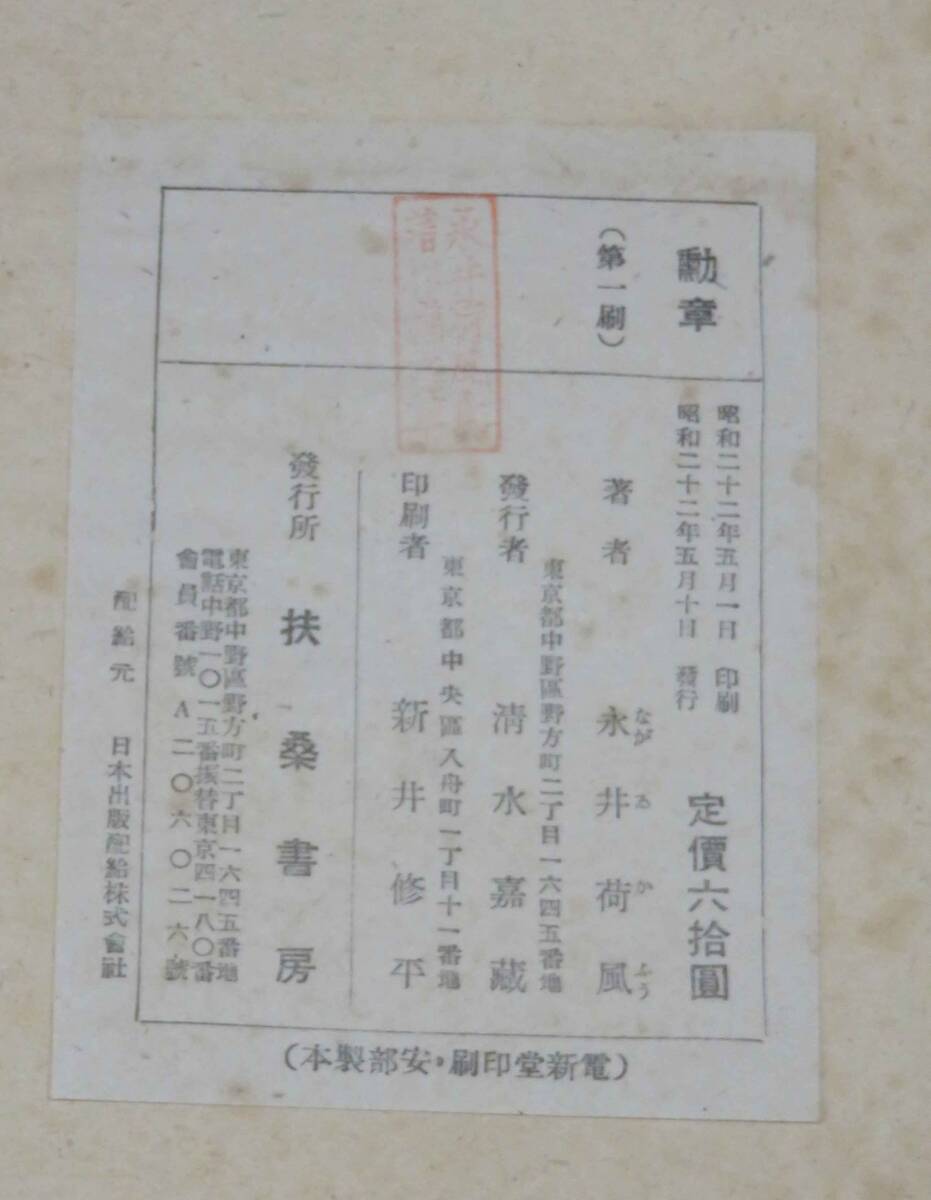 勳章
(第一刷)
昭和二十二年五月一日 印刷
昭和二十二年五月十日 發行
定價六拾圓
著者 永井荷風
なが ゐ か ふう
東京都中野區野方町二丁目一六四五番地
發行者 淸水嘉藏
東京都中央區入舟町一丁目十一番地
印刷者 新井修平
發行所 扶桑書房
東京都中野區野方町二丁目一六四五番地
電話中野一〇一五番振替東京四一八〇番
會員番號A二〇六〇二六號
配給元 日本出版配給株式會社
(電新堂印刷・安部製本)
永井
著